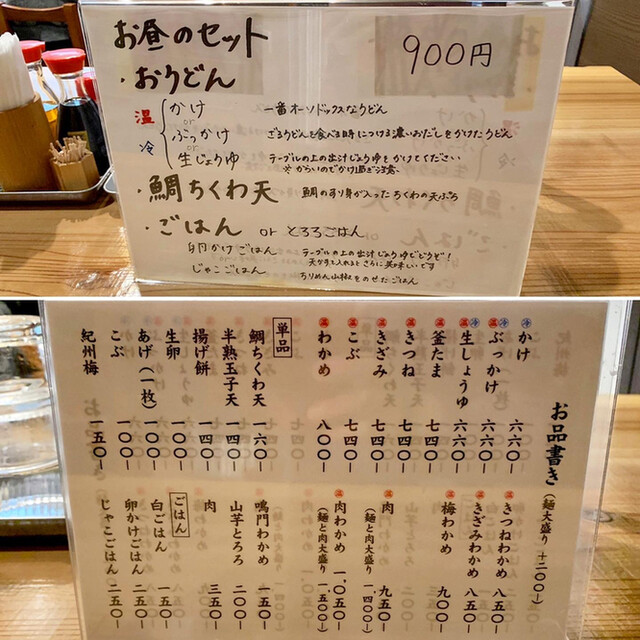 お昼のセット 900円
・おうどん
温 冷
かけ 一番オーソドックスなうどん
or
ぶっかけ ざるうどんを食べる時につける濃いおだしをかけたうどん
or
生じょうゆ テーブルの上の出汁じょうゆをかけてください
※からいのでかけ過ぎ注意
・鯛ちくわ天 鯛のすり身が入ったちくわの天ぷら
・ごはん or とろろごはん
卵かけごはん テーブルの上の出汁じょうゆでどうぞ!
天かすを入れるとさらに美味しいです
じゃこごはん ちりめん山椒をのせたごはん
お品書き (麺大盛り +二〇〇ー)
冷 かけ 六六〇ー
温 冷 ぶっかけ 六六〇ー
温 冷 生しょうゆ 六六〇ー
温 釜たま 七四〇ー
温 きつね 七四〇ー
温 きざみ 七四〇ー
温 こぶ 七四〇ー
温 わかめ 八〇〇ー
単品
鯛ちくわ天 一六〇ー
半熟玉子天 一四〇ー
揚げ餅 一四〇ー
生卵 一〇〇ー
あげ(一枚) 一〇〇ー
こぶ 一〇〇ー
紀州梅 一五〇ー
温 きつねわかめ 八五〇ー
温 きざみわかめ 八五〇ー
温 梅わかめ 九〇〇ー
温 肉 九五〇ー
(麺と肉大盛り 一,四〇〇ー)
温 肉わかめ 一,〇五〇ー
(麺と肉大盛り 一,五〇〇ー)
鳴門わかめ 一五〇ー
山芋とろろ 二〇〇ー
肉 三五〇ー
ごはん
白ごはん 一五〇ー
卵かけごはん 二五〇ー
じゃこごはん 二五〇ー